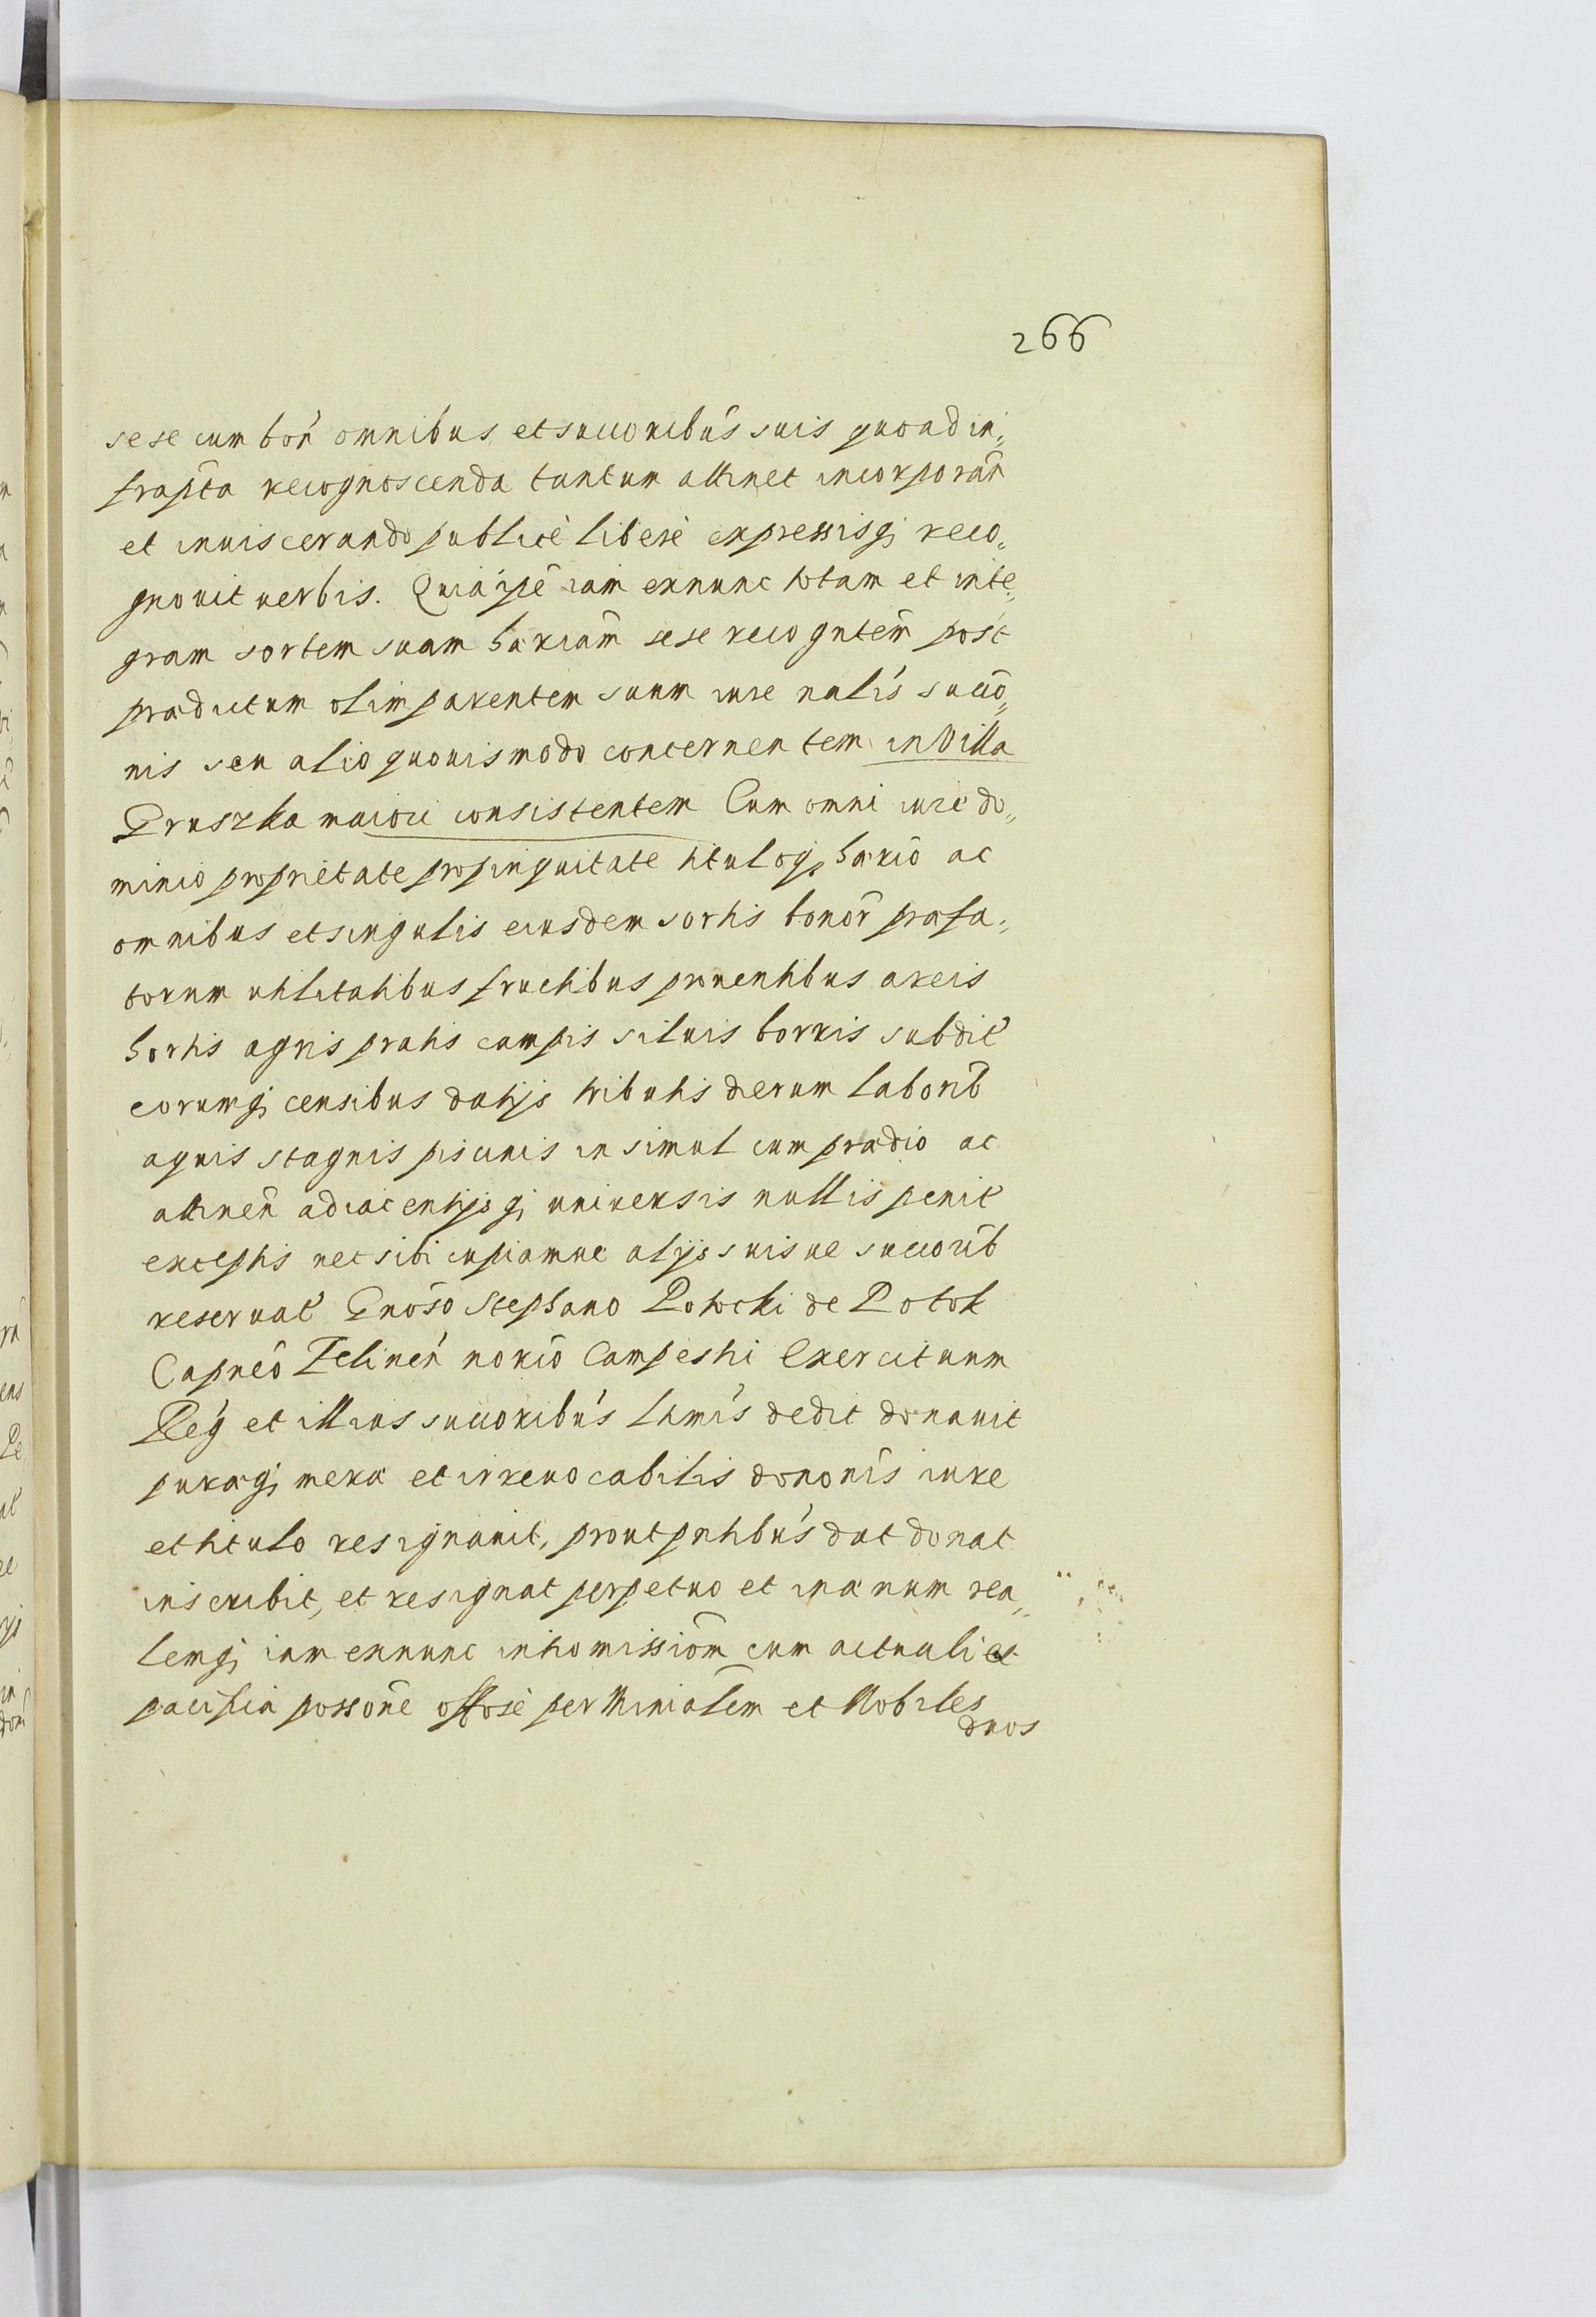 266
sese cum bon̄ omnibus et succoribūs suis quoad in„
frapt̄a recognoscenda tantum attinet incorporan̄
et inuiscerando publicè liberè expressisq; reco„
gnouit uerbis. Quia ipē iam exnunc totam et inte„
gram sortem suam hæriam̄ sese recogntem̄ post
prædictum olim parentem suum iure nalīs succo̅„
nis seu alio quouismodo concernentem in Villa
Gruszka maiori consistentem Cum omni iure do„
minio proprietate propinquitate tituloq; hærio̅ ac
omnibus et singulis eiusdem sortis bonor̄ præfa„
torum utilitatibus fructibus prouentibus areis
hortis agris pratis campis siluis borris subdit̄
eorumq; censibus datijs tributis dierum laborib̄
aquis stagnis piscinis insimul cum prædio ac
attinen̄ adiacentijsq; uniuersis nullis penit̄
exceptis nec sibi cupiamue alijs suisue succorib̄
reseruat̄ Gnōso Stephano Potocki de Potok
Capneo̅ Felinen̄ norio̅ Campestri Exercituum
Reg̅ et illius succoribūs ltimīs dedit donauit
puraq; mera et irreuocabilis dononīs iure
et titulo resignauit, prout pntibūs dat donat
inscribit, et resignat perpetuo et in æuum rea„
lemq; iam exnunc intromissiom̄ cum actuali et
pacifica possone̅ offosè per Minialem̄ et Nobiles
duos